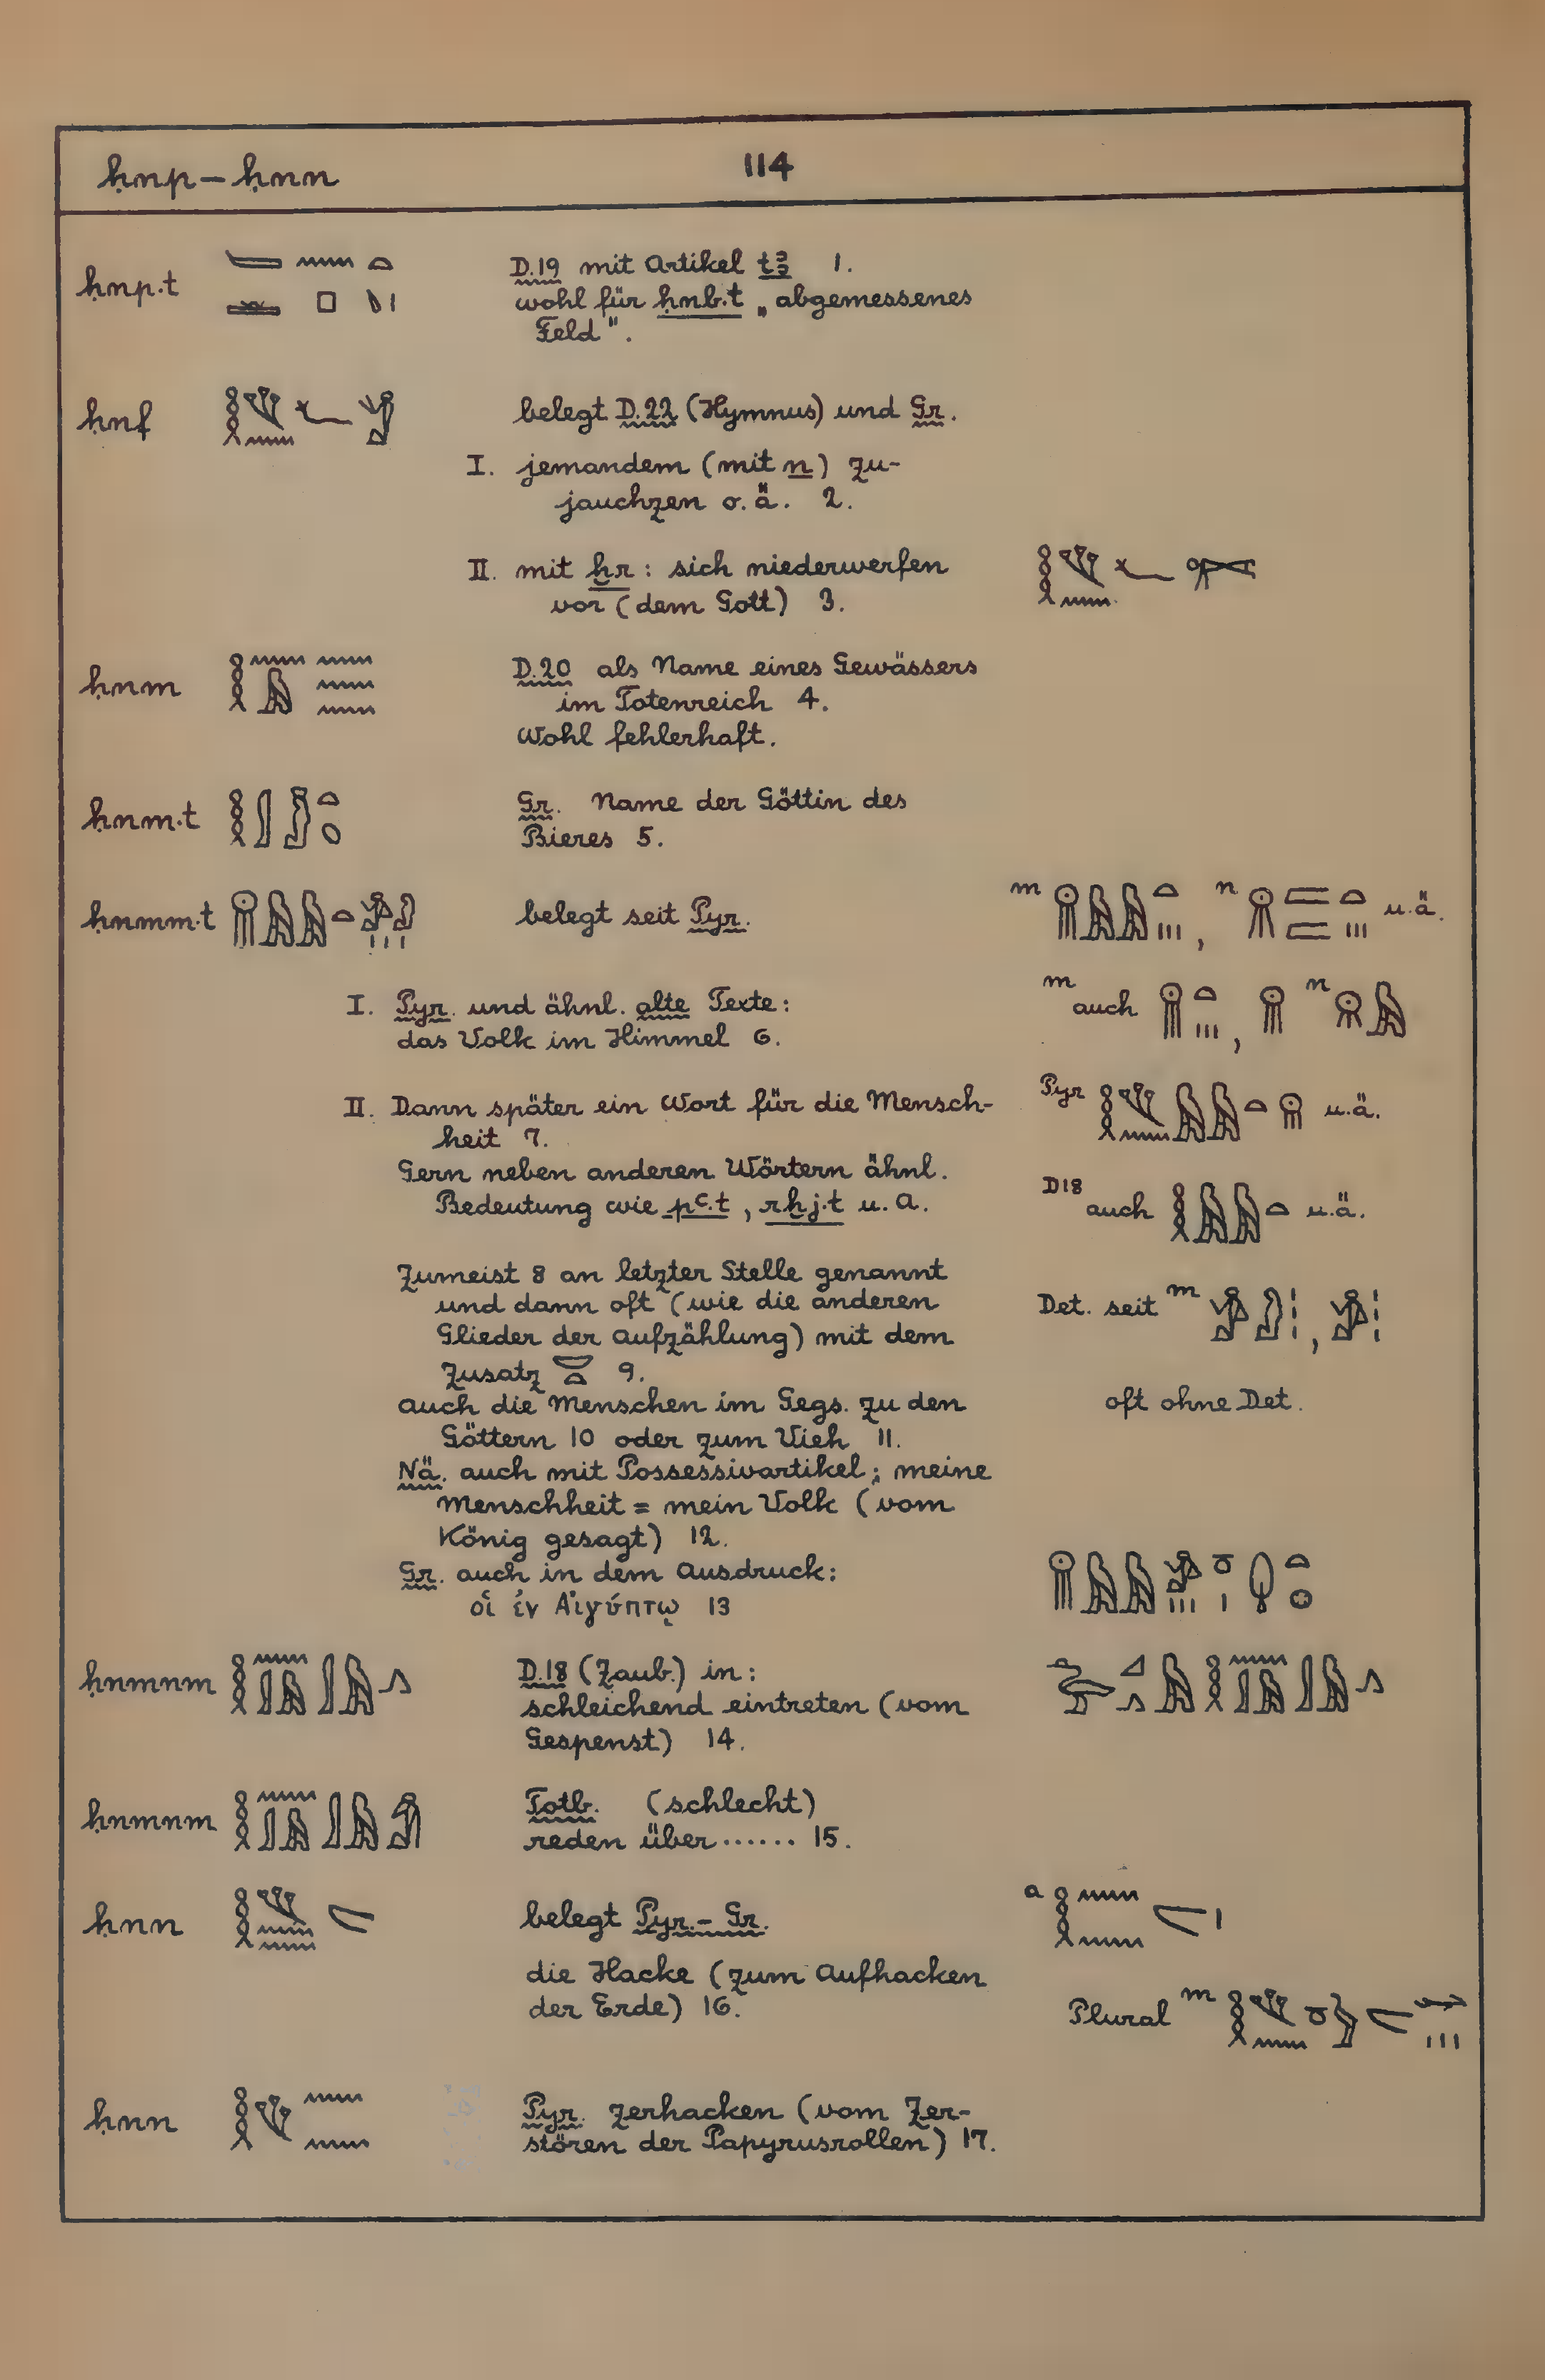 ḥnp – ḥnn 114
ḥnp.t D.19 mit Artikel tꜣ 1.
wohl für ḥnb.t „abgemessenes
Feld".
ḥnf belegt D.22 (Hymnus) und Gr.
I. jemandem (mit n) zu-
jauchzen o.ä. 2.
II. mit ẖr: sich niederwerfen
vor (dem Gott) 3.
ḥnm D.20 als Name eines Gewässers
im Totenreich 4.
Wohl fehlerhaft.
ḥnm.t Gr. Name der Göttin des
Bieres 5.
ḥnmm.t belegt seit Pyr. m , n u.ä.
I. Pyr. und ähnl. alte Texte: m auch , n
das Volk im Himmel 6.
II. Dann später ein Wort für die Mensch- Pyr u.ä.
heit 7.
Gern neben anderen Wörtern ähnl.
Bedeutung wie pꜥ.t, rḫj.t u. a. D18 auch u.ä.
Zumeist 8 an letzter Stelle genannt
und dann oft (wie die anderen Det. seit m ,
Glieder der Aufzählung) mit dem
Zusatz 9.
Auch die Menschen im Gegs. zu den oft ohne Det.
Göttern 10 oder zum Vieh 11.
Nä. auch mit Possessivartikel; meine
Menschheit = mein Volk (vom
König gesagt) 12.
Gr. auch in dem Ausdruck:
οἱ ἐν Αἰγύπτῳ 13
ḥnmnm D.18 (Zaub.) in:
schleichend eintreten (vom
Gespenst) 14.
ḥnmnm Totb. (schlecht)
reden über ...... 15.
ḥnn belegt Pyr. – Gr. a
die Hacke (zum Aufhacken
der Erde) 16. Plural m
ḥnn Pyr. zerhacken (vom Zer-
stören der Papyrusrollen) 17.